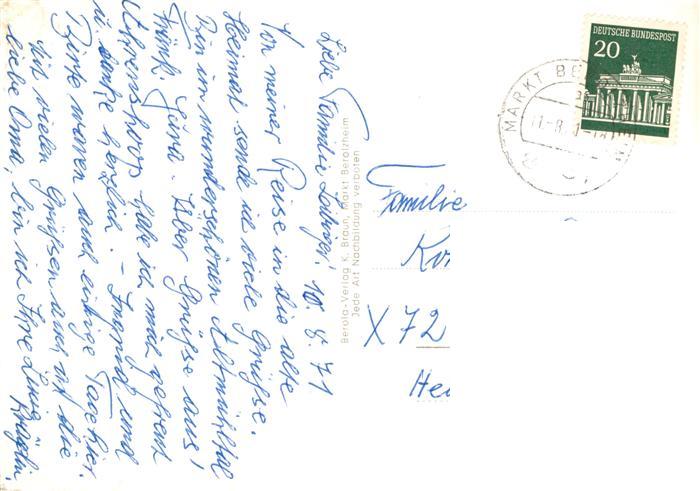 Liebe Familie 10.8.71
Von meiner Reise in die alte
Heimat sende ich viele Grüsse.
Bin im wunderschönen Altmühltal
Fränk. Jura. Über Grüsse aus
Ahrenshoop habe ich mich gefreut
u. danke herzlich. – Ingrid und
waren auch einige Tage hier.
Mit vielen Grüßen auch auf die
liebe Oma, bin ich Ihre
Berola-Verlag K. Braun, Markt Berolzheim
Jede Art Nachbildung verboten
DEUTSCHE BUNDESPOST
20
MARKT BE
Familie
X 72